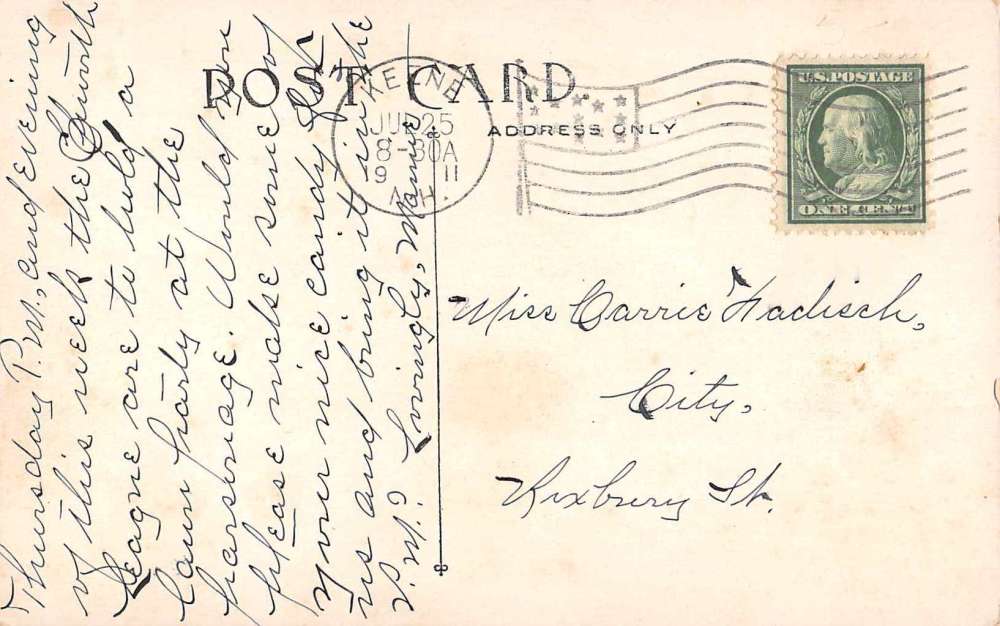 Thursday P.M., and evening
of this week the Epworth
League are to hold a
lawn party at the
parsonage. Would you
please make some of
your nice candy for
us and bring it in the
P.M.? Lovingly, Mamie.
POST CARD.
ADDRESS ONLY
KEENE
JUL 25
8-30A
19 11
N.H.
U.S. POSTAGE
ONE CENT
Miss Carrie Hadisch,
City,
Roxbury St.